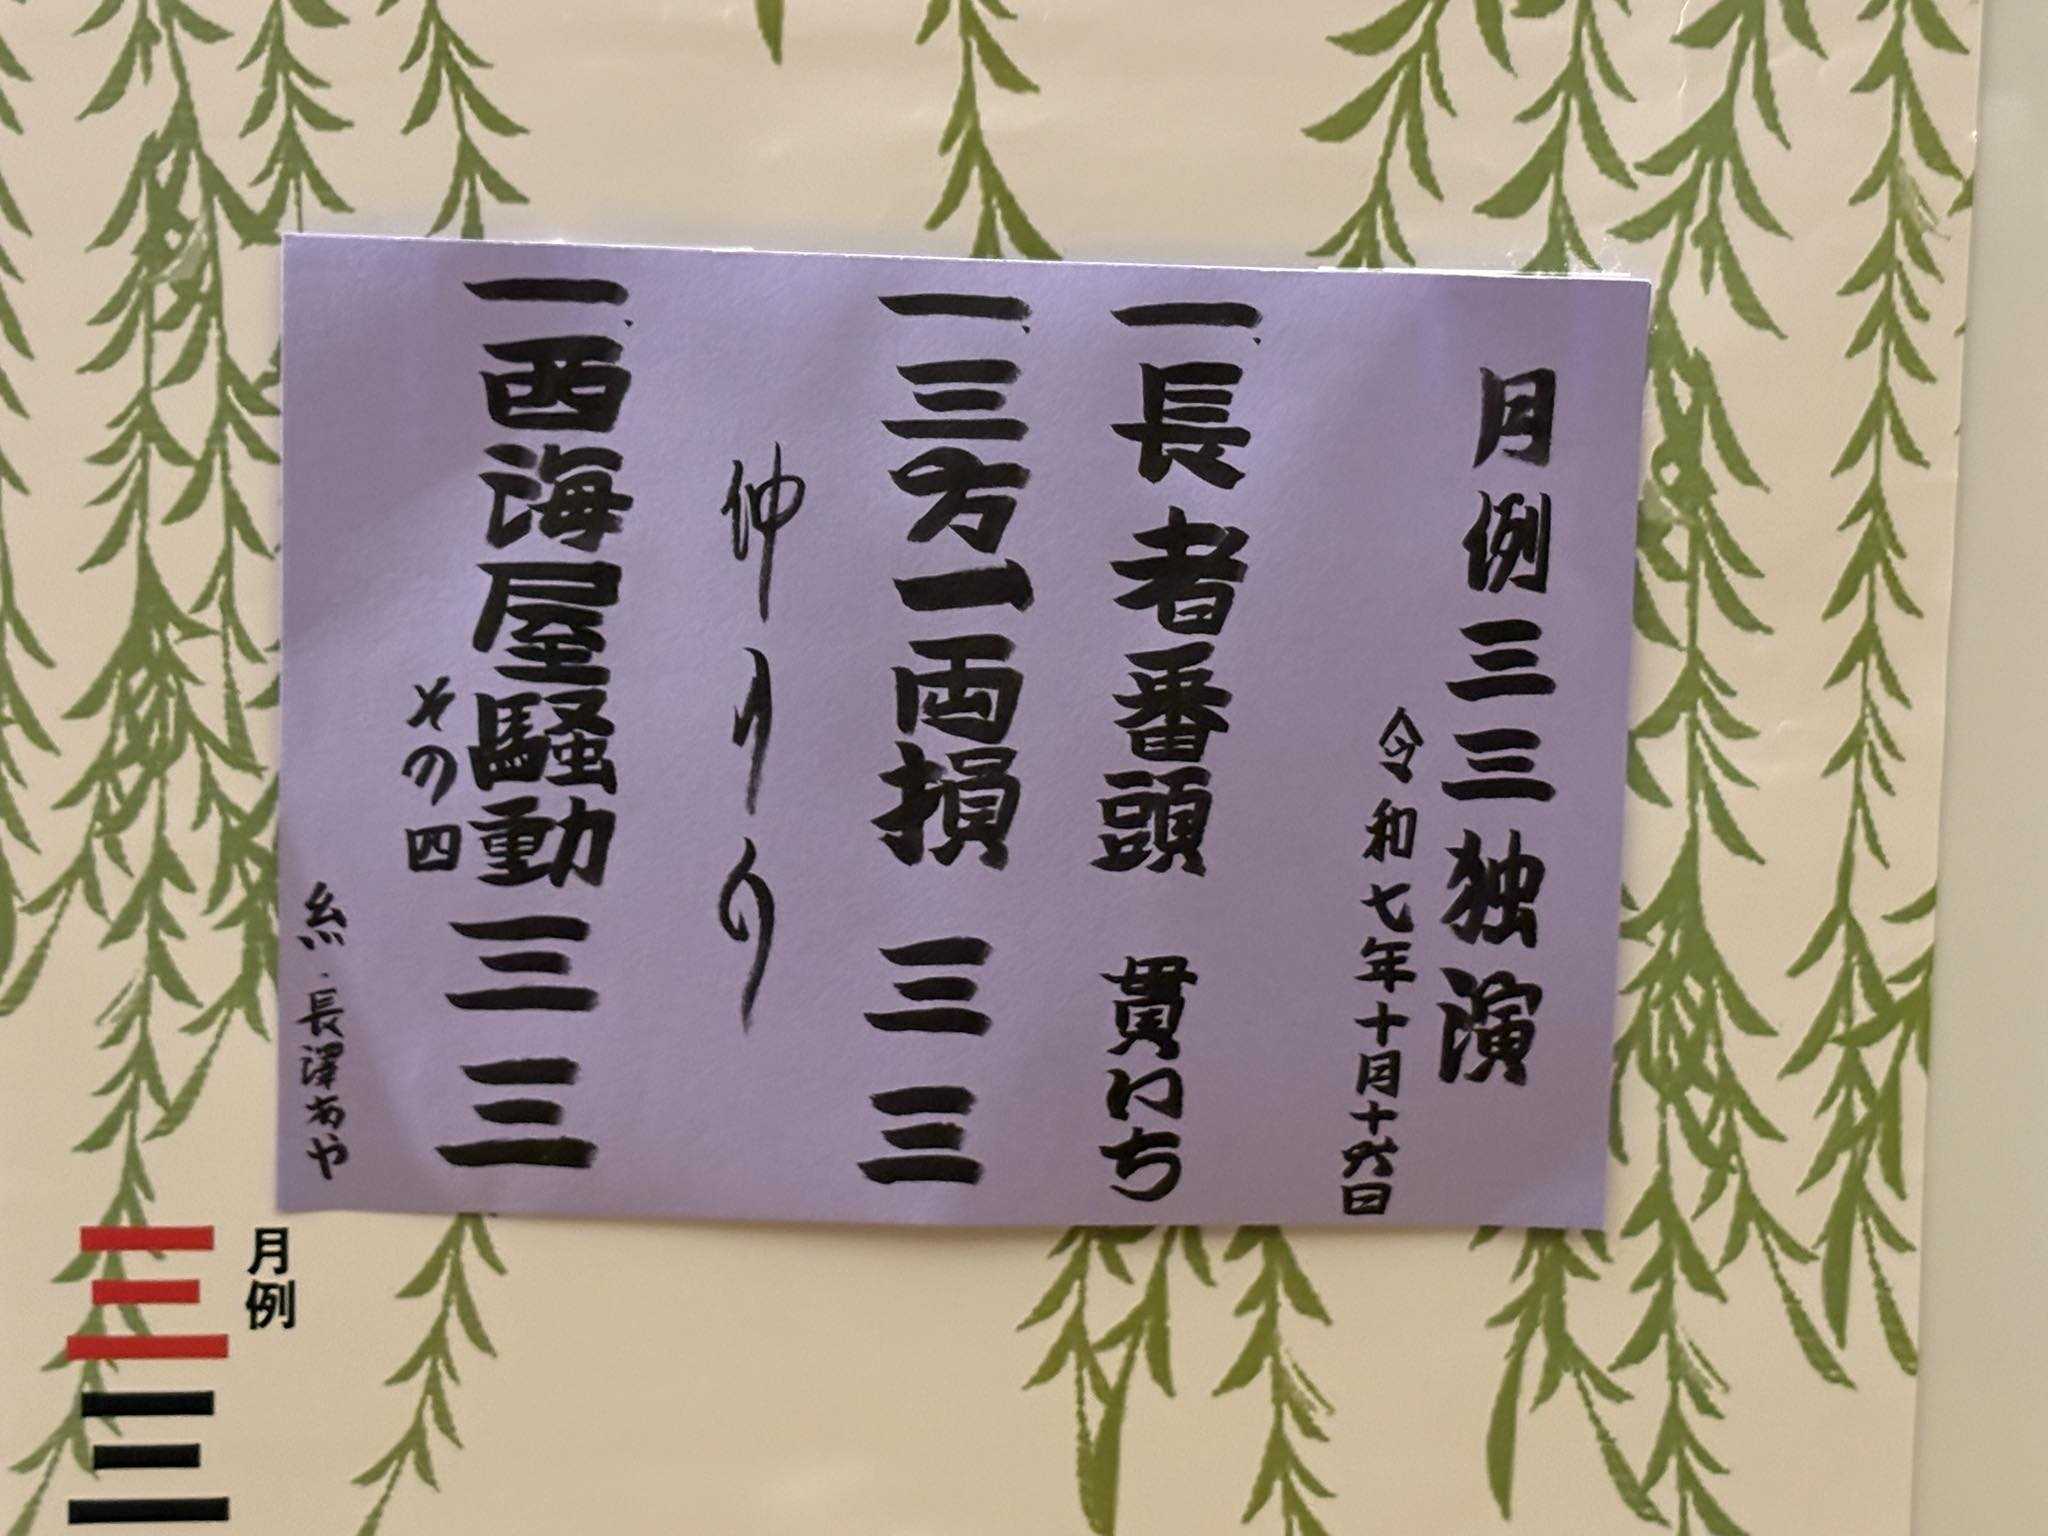 月例三三独演
令和七年十月十六日
一、長者番頭 貫いち
一、三方一両損 三三
仲入り
一、西海屋騒動 三三
その四
糸・長澤あや
月例
三三